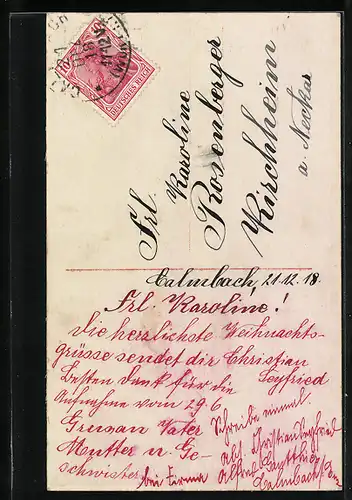 10
DEUTSCHES REICH
Frl.
Karoline
Rosenberger
Kirchheim
a. Neckar
Calmbach, 21.12.18.
Frl. Karoline!
Die herzlichste Weihnachts-
grüsse sendet dir Christian
Seyfried
Besten Dank für die
Aufnahme vom 29.6
Grussan Vater
Mutter u. Ge-
schwister
Schreibe einmal.
abs. Christian Seyfried
bei Firma Alfred
Calmbach